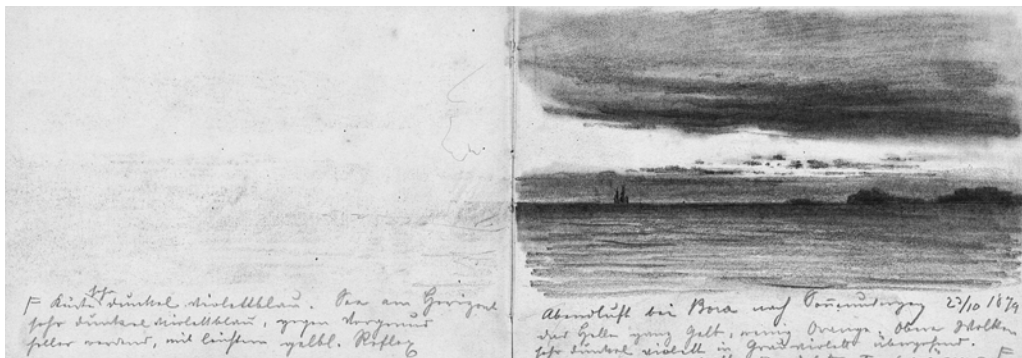 F Küste sehr dunkel violettblau. See am Horizont
sehr dunkel violettblau, gegen Vorgrund
heller werdend, mit leichtem gelbl. Reflex
Abendluft bei Bora nach Sonnenuntergang 23/10 1879
das Helle ganz Gelb, wenig Orange. Obere Wolken
sehr dunkel violett in Grauviolett übergehend. F